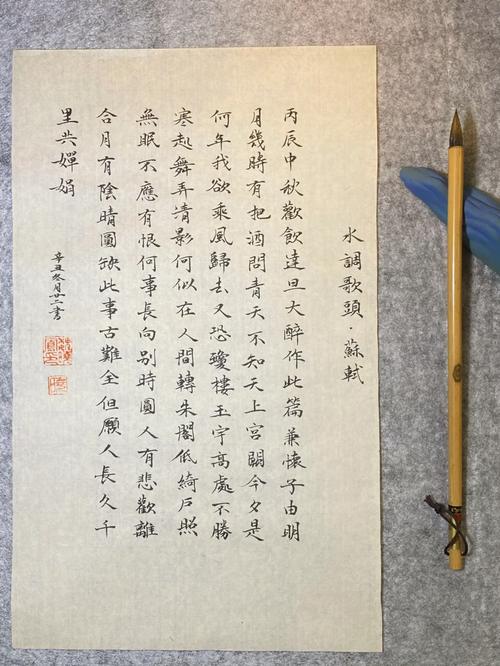 水調歌頭·蘇軾
丙辰中秋歡飲達旦大醉作此篇兼懷子由明
月幾時有把酒問青天不知天上宮闕今夕是
何年我欲乘風歸去又恐瓊樓玉宇高處不勝
寒起舞弄清影何似在人間轉朱閣低綺戶照
無眠不應有恨何事長向別時圓人有悲歡離
合月有陰晴圓缺此事古難全但願人長久千
里共嬋娟
辛丑冬月廿二書